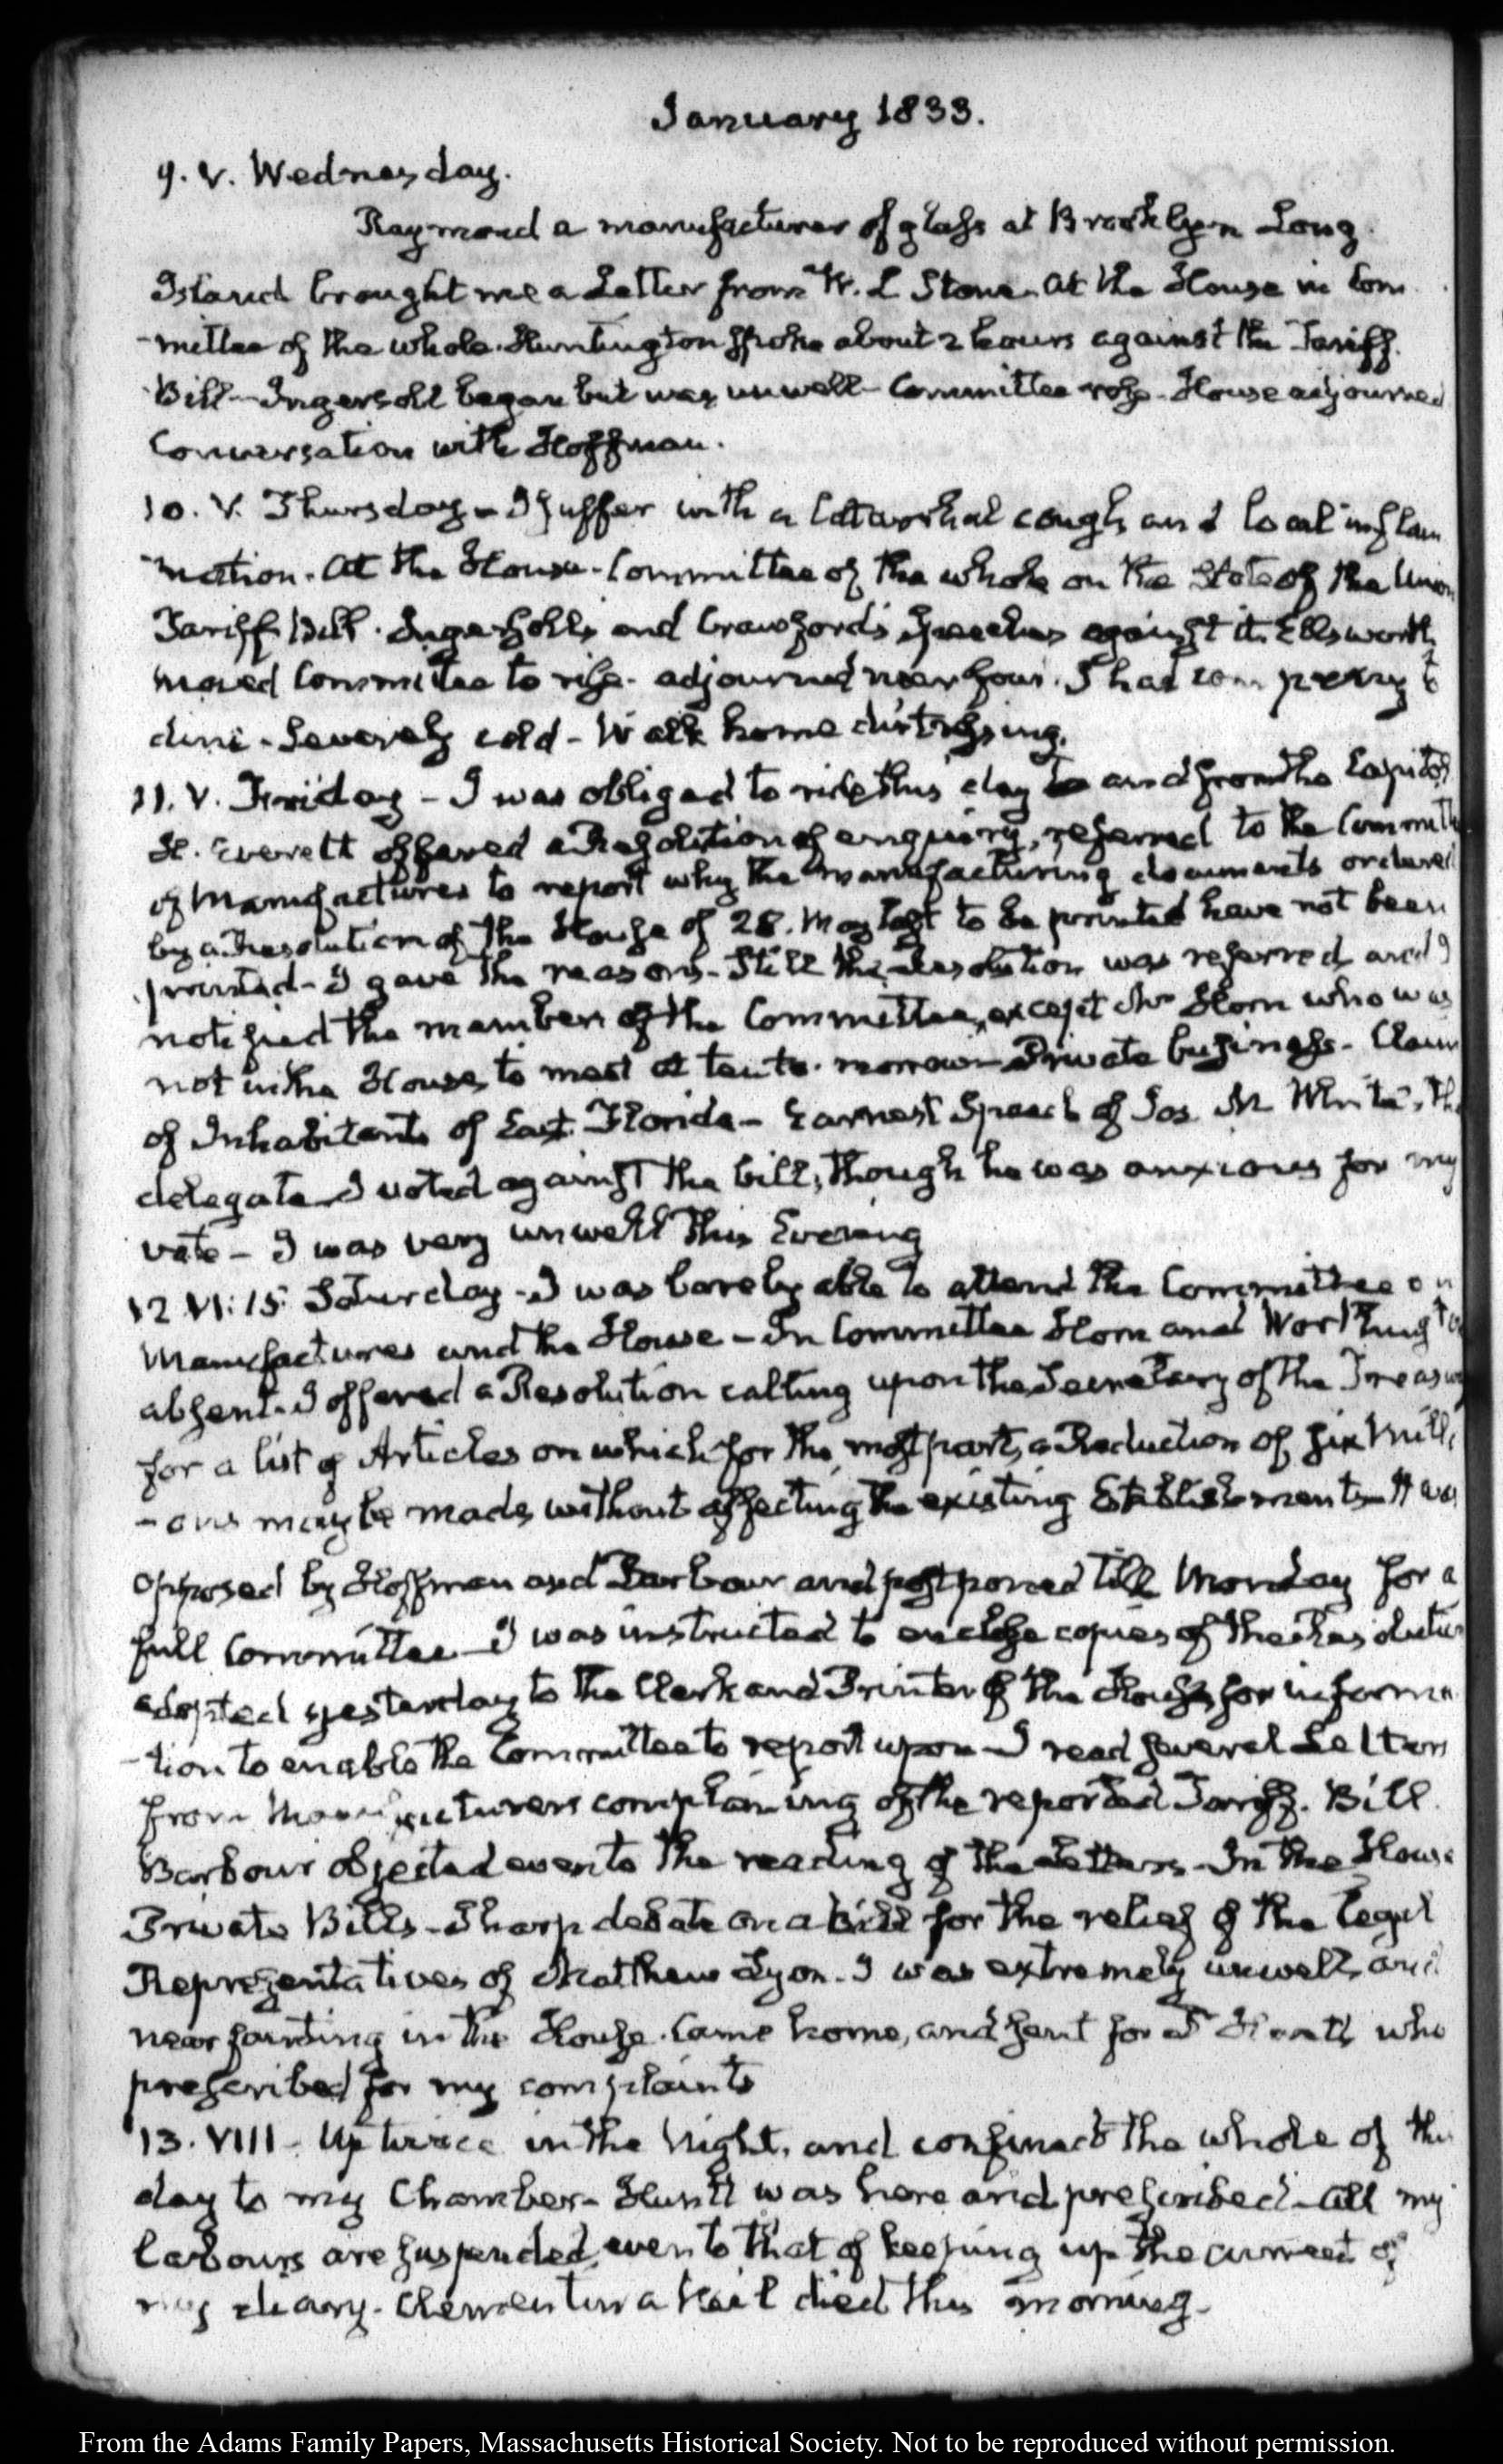 January 1833.
9. V. Wednesday.
Raymond a manufacturer of glass at Brooklyn Long
Island brought me a Letter from W. L Stone. At the House in Com
-mittee of the whole. Huntington spoke about 2 hours against the Tariff
Bill—Ingersoll began but was unwell—Committee rose—House adjourned
Conversation with Hoffman.
10. V. Thursday—I suffer with a Catarrhal cough and local inflam
-mation. At the House—Committee of the whole on the State of the Union
Tariff Bill. Ingersoll's and Crawford's Speeches against it. Ellsworth
moved Committee to rise—adjourned near four. I had company to
dine—Severely cold—Walk home distressing.
11. V. Friday—I was obliged to ride this day to and from the Capitol
H. Everett offered a Resolution of enquiry, referred to the Committee
of Manufactures to report why the manufacturing documents ordered
by a Resolution of the House of 28. May last to be printed have not been
printed—I gave the reasons—Still the Resolution was referred and I
notified the members of the Committee, except Mr Horn who was
not in the House, to meet at ten to-morrow—Private business—Claim
of Inhabitants of East Florida—Earnest Speech of Jos. M White, the
delegate—I voted against the bill, though he was anxious for my
vote—I was very unwell this Evening
12 VI:15 Saturday—I was barely able to attend the Committee on
Manufactures and the House—In Committee Horn and Worthington
absent—I offered a Resolution calling upon the Secretary of the Treasury
for a list of Articles on which for the most part, a Reduction of six Milli
-ons may be made, without affecting the existing Establishments—It was
opposed by Hoffman and Barbour and postponed till Monday for a
full Committee—I was instructed to enclose copies of the Resolution
adopted yesterday to the Clerk and Printer of the House, for informa
-tion to enable the Committee to report upon—I read several Letters
from Manufacturers complaining of the reported Tariff. Bill
Barbour objected even to the reading of the Letters—In the House
Private Bills—Sharp debate on a Bill for the relief of the legal
Representatives of Matthew Lyon. I was extremely unwell, and
near fainting in the House. Came home, and sent for Dr Huntt who
prescribed for my complaints
13. VIII. Up twice in the Night, and confined the whole of this
day to my Chamber—Huntt was here and prescribed—All my
labours are suspended, even to that of keeping up the current of
my diary. Clementina Kail died this morning.
From the Adams Family Papers, Massachusetts Historical Society. Not to be reproduced without permission.